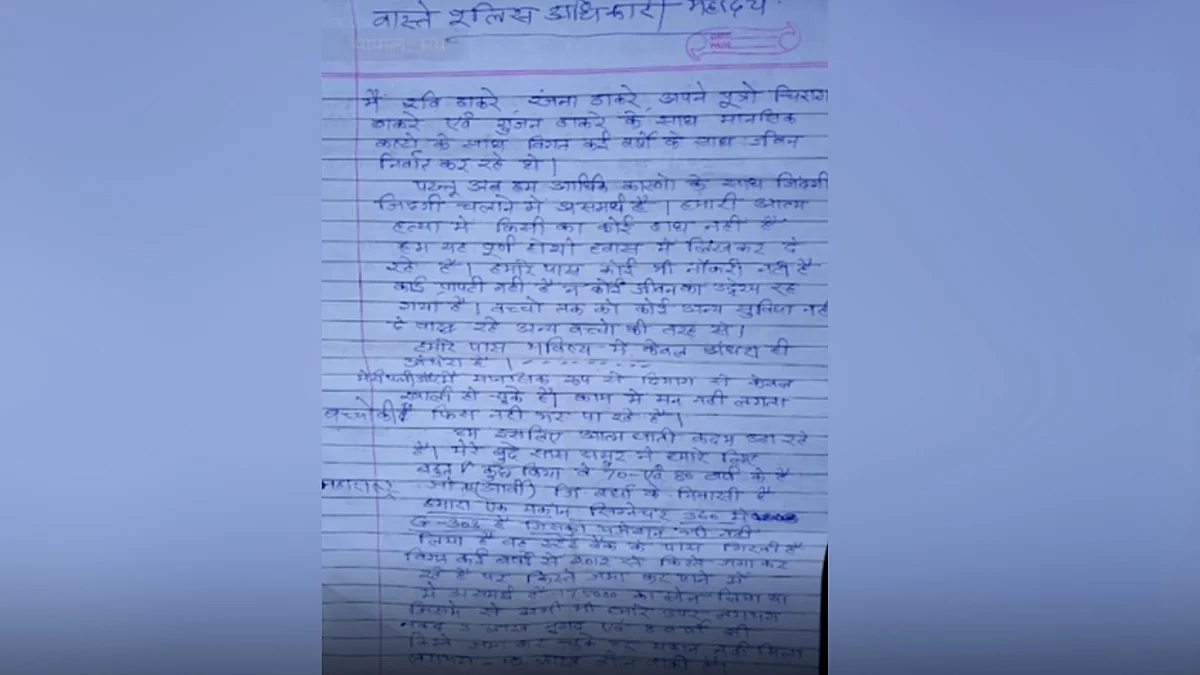 वास्ते पुलिस अधिकारी महोदय
DATE
PAGE
मैं रवि ठाकरे रंजना ठाकरे अपने पुत्रो चिराग
ठाकरे एवं गुंजन ठाकरे के साथ मानसिक
कष्टो के साथ विगत कई वर्षो के साथ जीवन
निर्वाह कर रहे थे।
परन्तू अब हम आर्थिक कारणो के साथ जिंदगी
जिंदगी चलाने मे असमर्थ है। हमारी आत्म
हत्या मे किसी का कोई हाथ नही है
हम यह पूर्ण होशो हवास मे लिखकर दे
रहे है। हमारे पास कोई भी नौकरी नही है
कोई प्रापर्टी नही है न कोई जीवन का उद्देश्य रह
गया है। बच्चो तक को कोई अन्य सुविधा नही
दे पास रहे अन्य बच्चो की तरह से।
हमारे पास भविष्य मे केवल अंधेरा ही
अंधेरा है।
मेरी पत्नी और मै मानसिक रूप से दिमाग से केवल
खाली हो चुके है। काम मे मन नही लगता
बच्चो की फिस नही भर पा रहे है।
हम इसलिए आत्मघाती कदम उठा रहे
है। मेरे बुढे सास ससुर ने हमारे लिए
बहुत कुछ किया वे 70 एवं 80 वर्ष के है
महाराष्ट्र जि वर्धा के निवासी है
हमारा एक मकान सिग्नेचर 360 मे
G-303 है जिसका पजेशन भी नही
लिया है वह स्टेट बैंक के पास गिरवी है
विगत कई वर्षो से किस्ते जमा कर
रहे है पर किस्ते जमा कर पाने मे
मे असमर्थ है का लोन लिया था
जिसमे से अभी भी हमारे उपर लगभग
लाख एवं 8 वर्षो की
किस्ते जमा कर चुके पर मकान नही मिला
लगभग लाख लोन बाकी है।